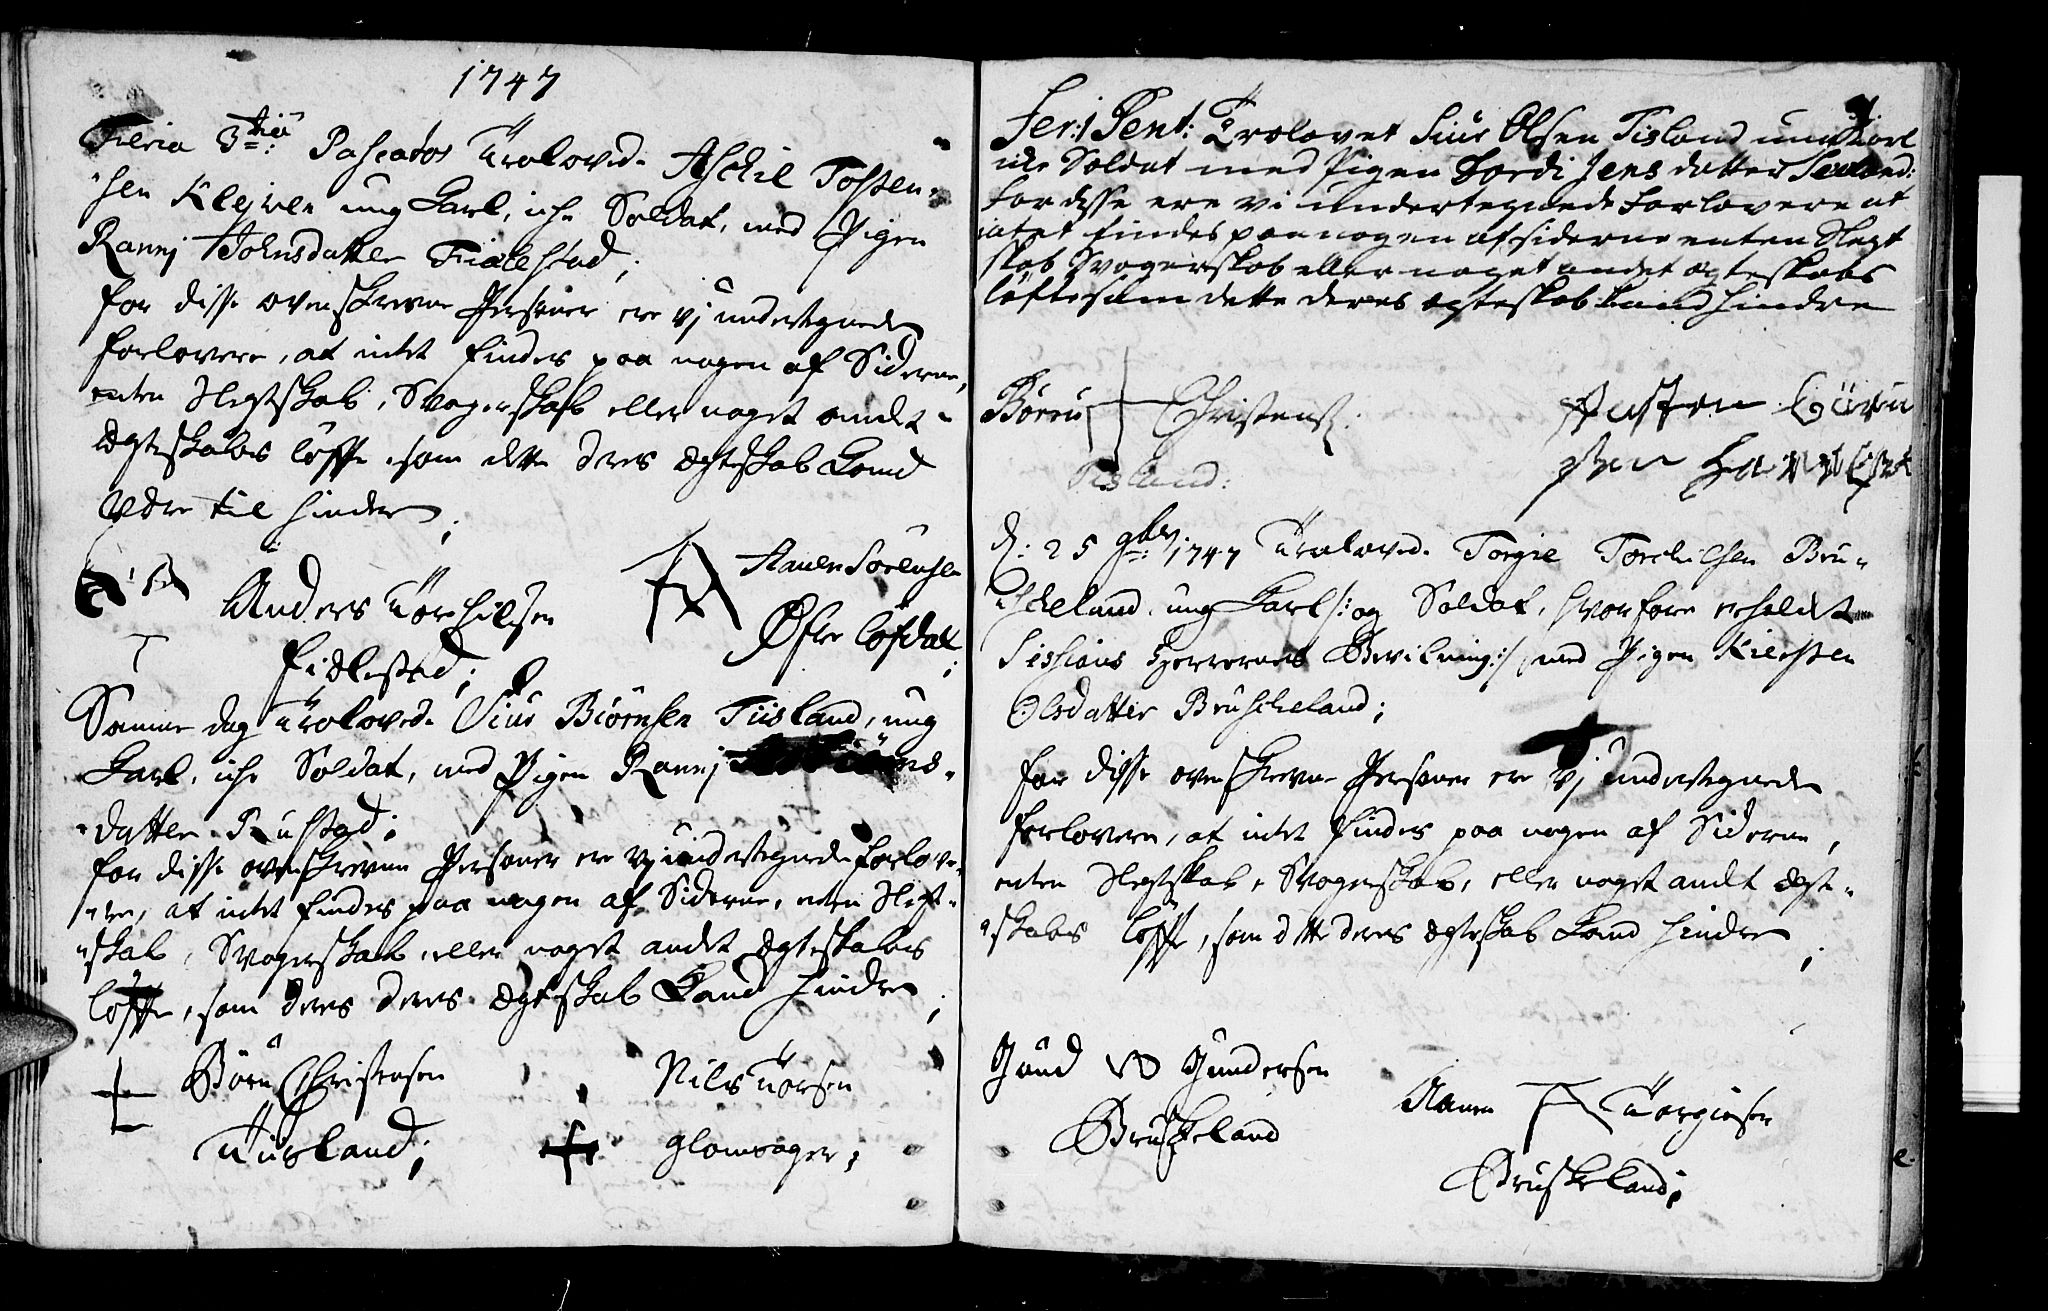 1747
Feria 3tiâ Pascatos Trolovede Aschil Tosten-
-sen Klejven ung Karl, iche Soldat, med Pigen
Rannj Johnsdatter Fidlestad;
For disse ovenskrevne Persower ere vj undertegnede
forlovere, at intet findes paa nogen af Siderne,
enten Slegtskab, Svogerskab eller noget andet
Ægteskabs löfte, som dette deres Ægteskab Kand
være til hinder;
Anders Torchilsen
Fidlestad;
Aanen Sörensen
Øfre löfdal;
Samme dag Trolovede Siur Biörnsen Tiisland, ung
Karl, iche Soldat, med Pigen Rannj
datter Rustad;
For disse ovenskrevne Persower ere vj undertegnede forlove-
-re, at intet findes paa nogen af Siderne, enten Slegt-
-skab, Svogerskab, eller noget andet Ægteskabs
löfte, som deres deres Ægteskab Kand hindre;
Börn Christensen
Tiisland;
Nils Torsen
Glomsager;
Fer: 1 Pent: Trolovet Siur Olsen Tisland ung Karl
icke Soldat med Pigen Tordi Jens datter
for disse ere vi undertegnede forlovere at
intet findes paa nogen af siderne enten Slegt
skab Svogerskab eller noget andet egteskabs
löfte som dette deres egteskab kand hindre
Börn Christens:
Tisland:
d: 25 9br: 1747 Trolovede Torgie Torchilsen Bru-
-scheland, ung Karl /: og Soldat, hvorfore erholdet
Sessions Herrernes Bevilning :/ med Pigen Kiersten
Olsdatter Bruscheland;
For disse ovenskrevne Persower ere vj undertegnede
forlovere, at intet findes paa nogen af Siderne,
enten Slegtskab, Svogerskab, eller noget andt Ægte-
-skabs löfte, som dette deres Ægteskab Kand hindre;
Gund Gundersen
Bruskeland
Aanen Torgiersen
Bruskeland;